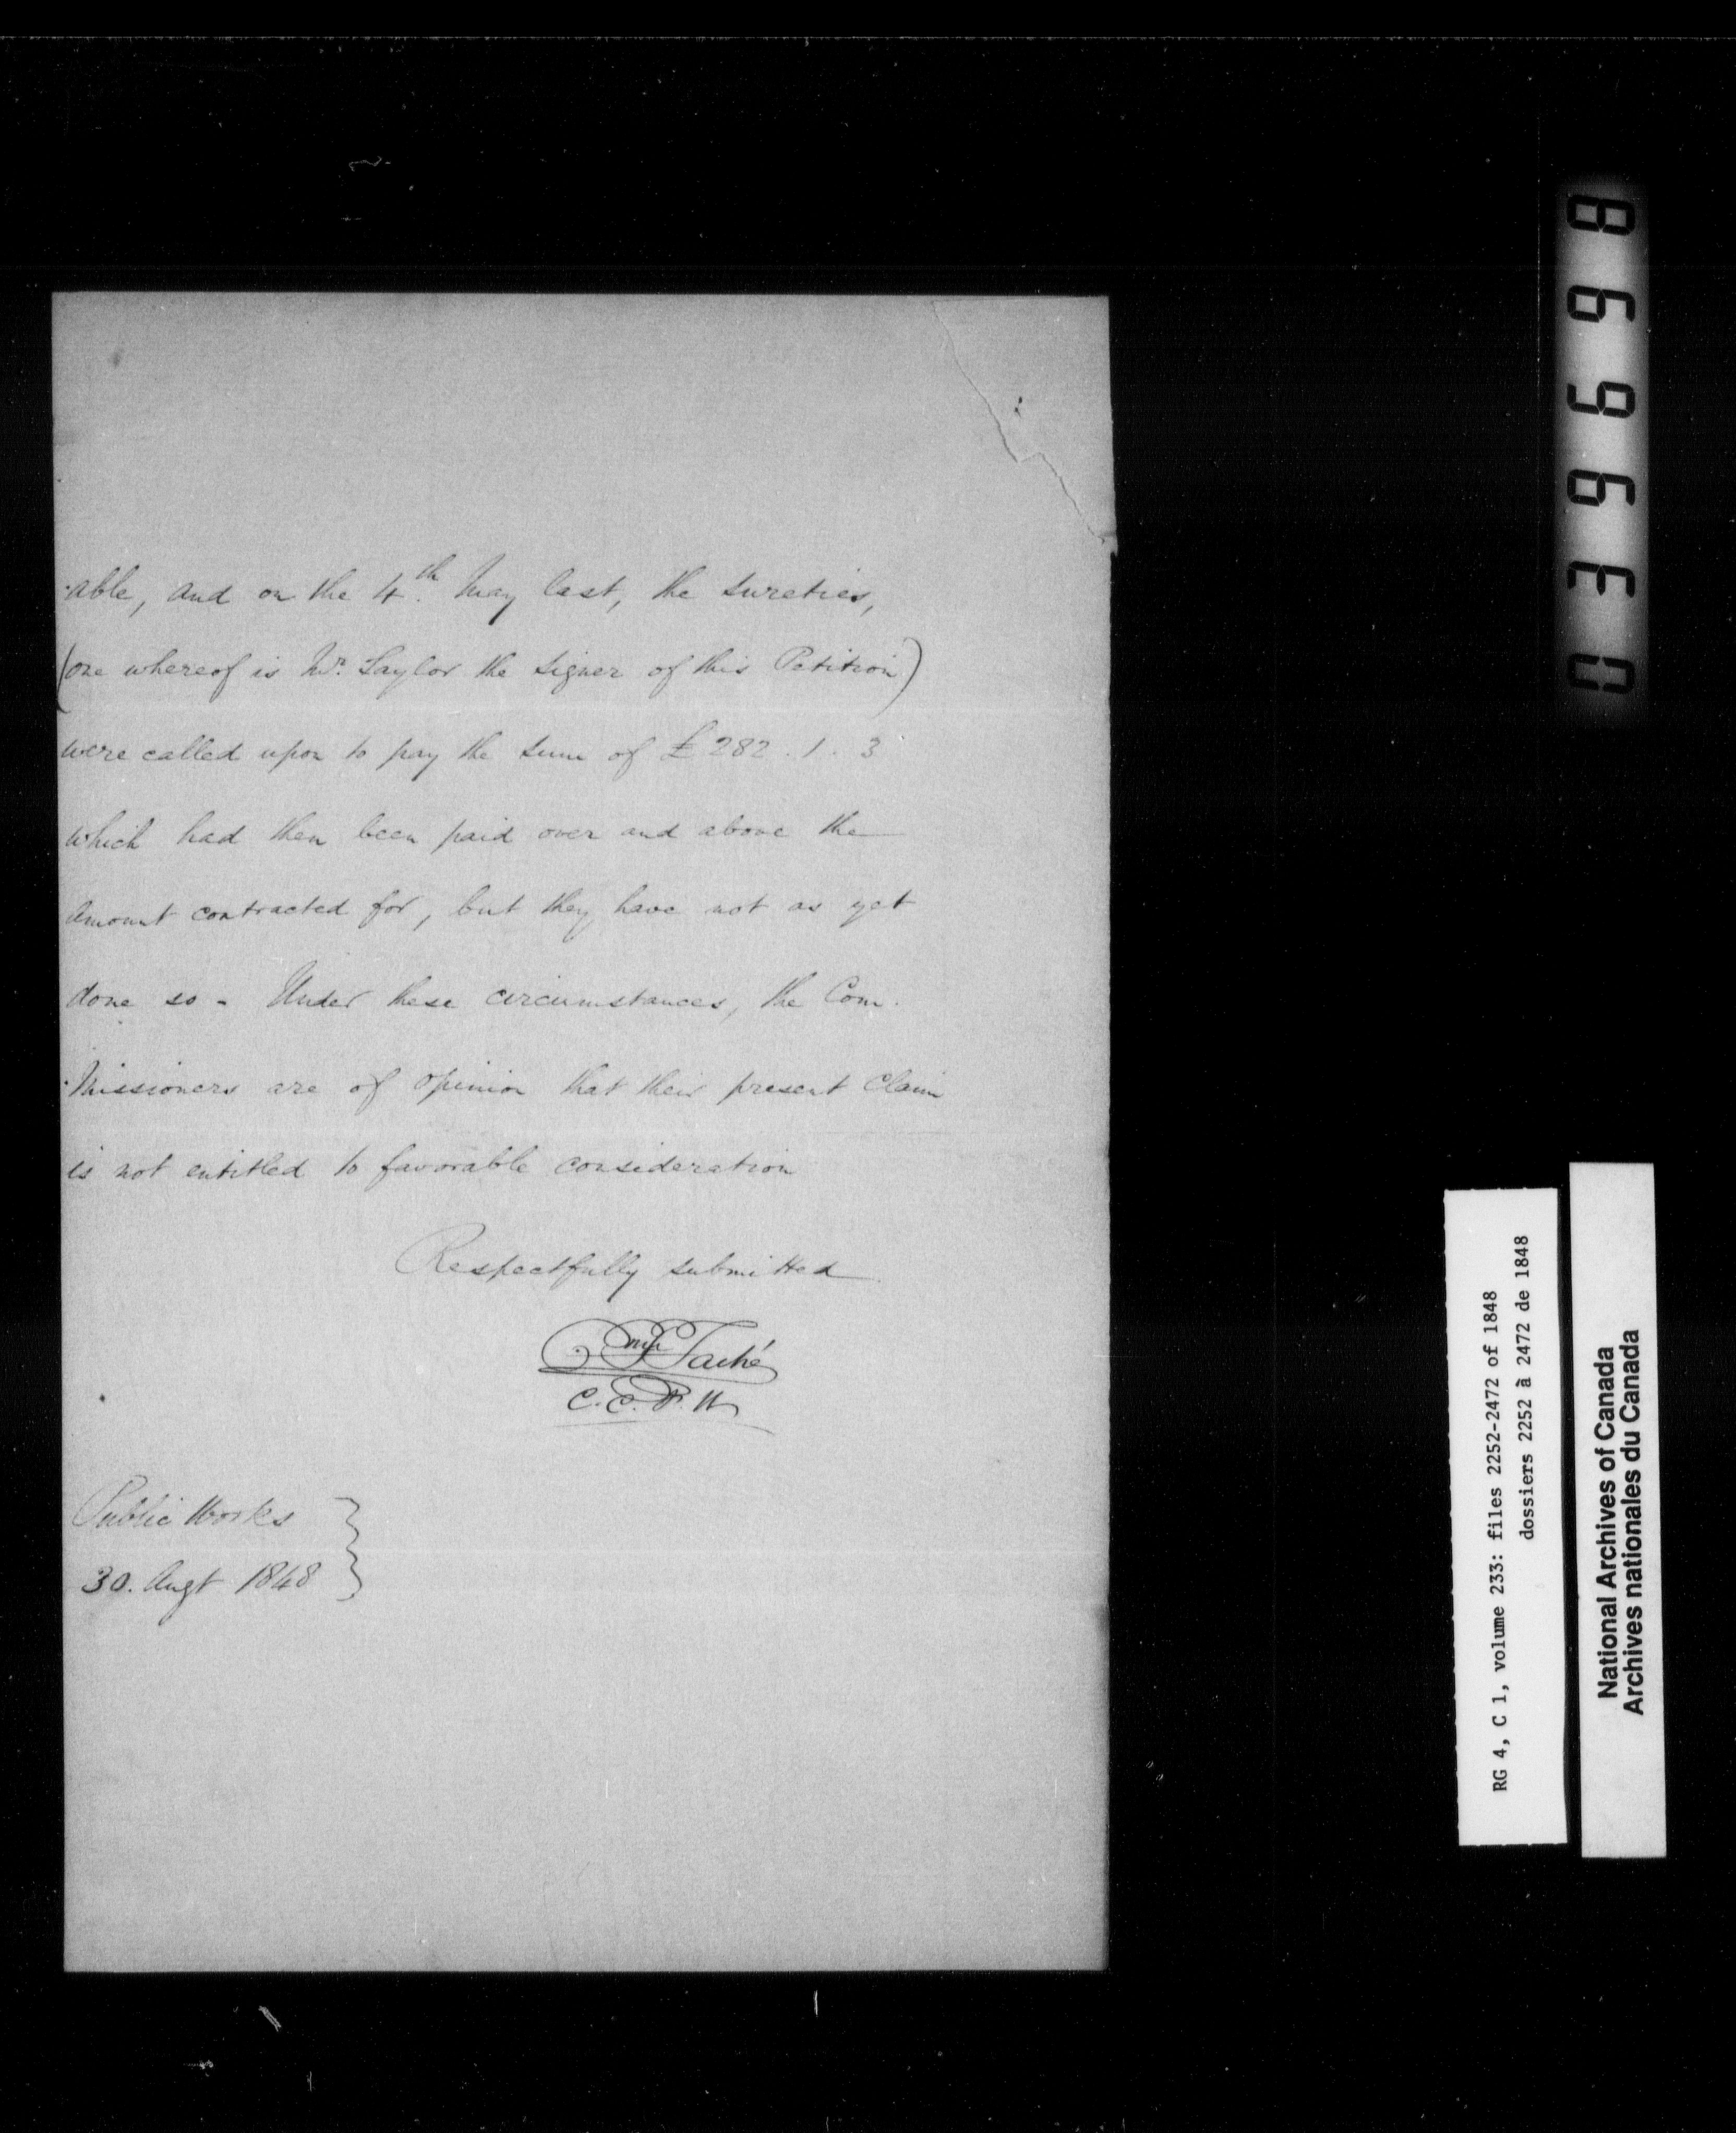 -able, and on the 4th. May last, the sureties,
(one whereof is Mr. Taylor the signer of this Petition)
were called upon to pay the sum of £282.1.3
which had then been paid over and above the
amount contracted for, but they have not as yet
done so - Under these circumstances, the Com-
-missioners are of opinion that their present Claim
is not entitled to favorable consideration
Respectfully submitted
Taché
C.C.P.W
Public Works
30. Augt 1848
039698
RG 4, C 1, volume 233: files 2252-2472 of 1848
dossiers 2252 à 2472 de 1848
National Archives of Canada
Archives nationales du Canada